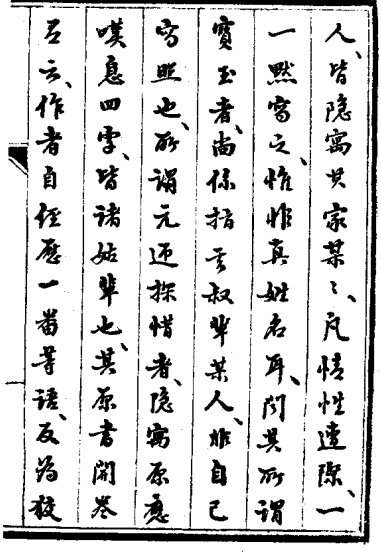 人、皆隱寓其家某〻、凡情性遭際、一
一默寫之、惟非真姓名耳、聞其所謂
寶玉者、尚係指其叔輩某人、非自己
寫照也、所謂元迎探惜者、隱寓原應
嘆息四字、皆諸姑輩也、其原書開卷
有云、作者自經歷一番等語、反為狡